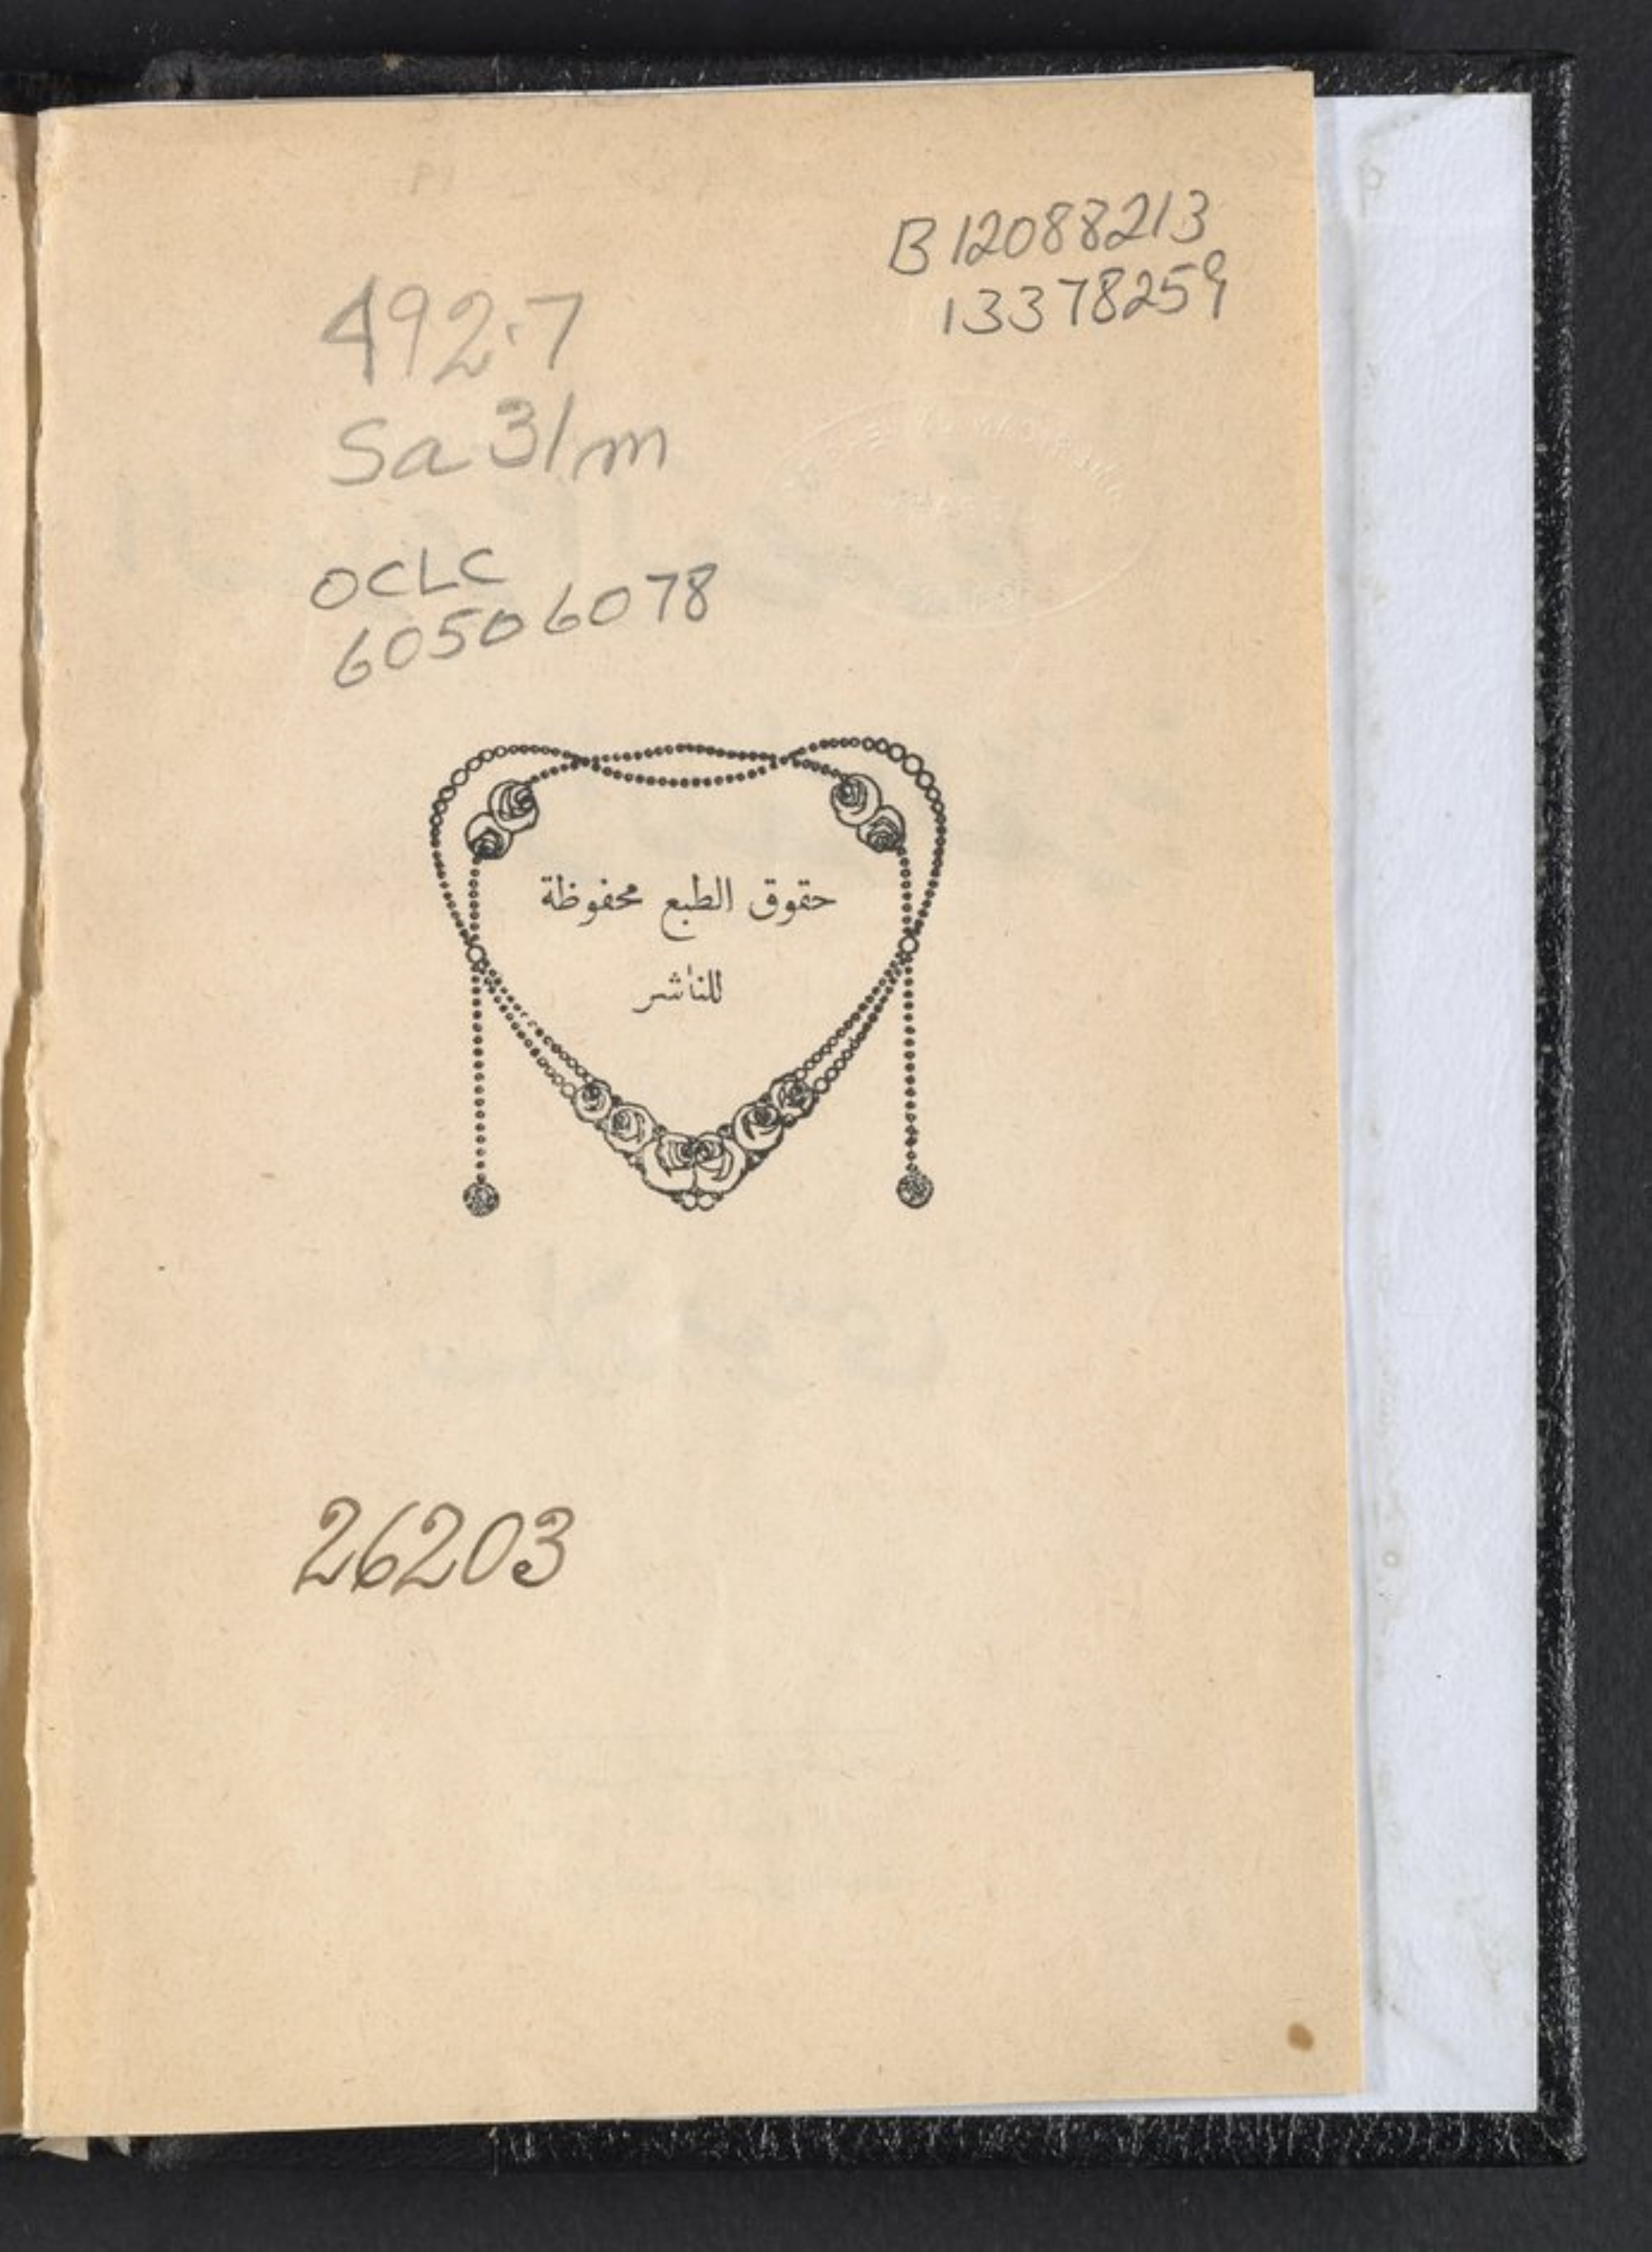 B 12088213
13378259
492.7
Sa31m
OCLC
60506078
حقوق الطبع محفوظة
للناشر
26203